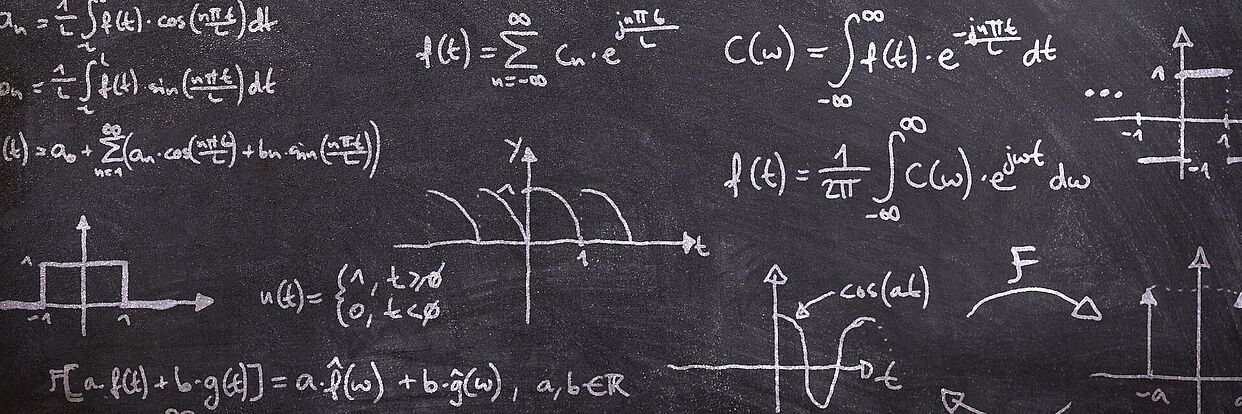 aₙ = 1/L ∫ f(t)·cos(nπt/L) dt
bₙ = 1/L ∫ f(t)·sin(nπt/L) dt
(t) = a₀ + ∑_{n=1}^{∞} (aₙ·cos(nπt/L) + bₙ·sin(nπt/L))
f(t) = ∑_{n=-∞}^{∞} cₙ·e^{jnπt/L}
C(ω) = ∫_{-∞}^{∞} f(t)·e^{-jnπt/L} dt
f(t) = 1/2π ∫_{-∞}^{∞} C(ω)·e^{jωt} dω
1
...
-1 1
-1
y
1
1 t
1
-1 1
u(t) = {1, t≥0
{0, t<0
cos(at)
t
F
-a
F[a·f(t) + b·g(t)] = a·f̂(ω) + b·ĝ(ω), a,b∈ℝ
∞